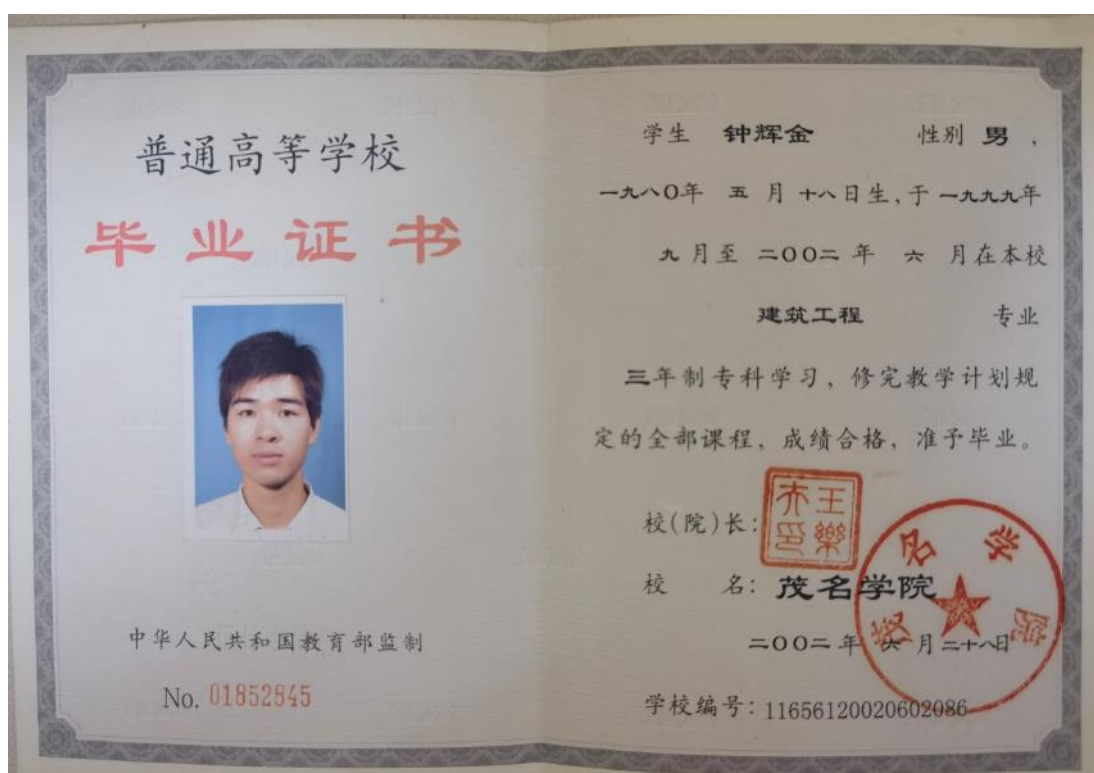 普通高等学校
毕业证书
中华人民共和国教育部监制
No. 01852845
学生 钟辉金 性别 男,
一九八〇年 五 月 十八日生,于 一九九九年
九 月至 二〇〇二 年 六 月在本校
建筑工程 专业
三年制专科学习,修完教学计划规
定的全部课程,成绩合格,准予毕业。
校(院)长:
王樂夫印
校 名: 茂名学院
茂名学院
二〇〇二 年 六 月 二十八日
学校编号: 11656120020602086